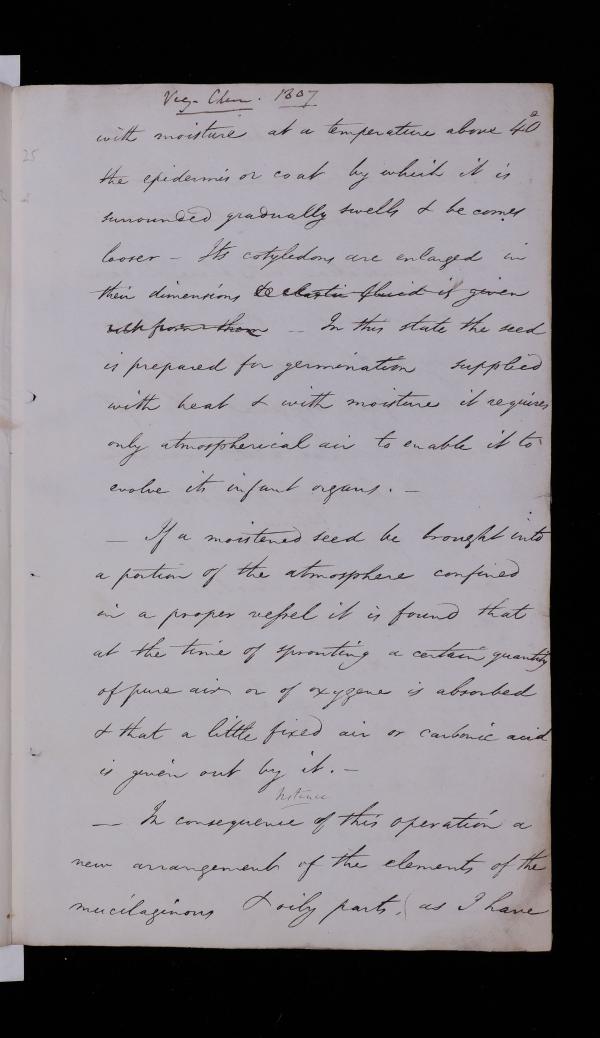 Veg- Chem. 1807
with moisture at a temperature above 40°
the epidermis or coat by which it is
surrounded gradually swells & becomes
looser – Its cotyledons are enlarged in
their dimensions elastic fluid is given
from them – In this state the seed
is prepared for germination supplied
with heat & with moisture it requires
only atmospherical air to enable it to
evolve its infant organs. –
– If a moistened seed be brought into
a portion of the atmosphere confined
in a proper vessel it is found that
at the time of sprouting a certain quantity
of pure air or of oxygene is absorbed
& that a little fixed air or carbonic acid
is given out by it. –
– In consequence of this operation a
new arrangement of the elements of the
mucilaginous & oily parts, (as I have